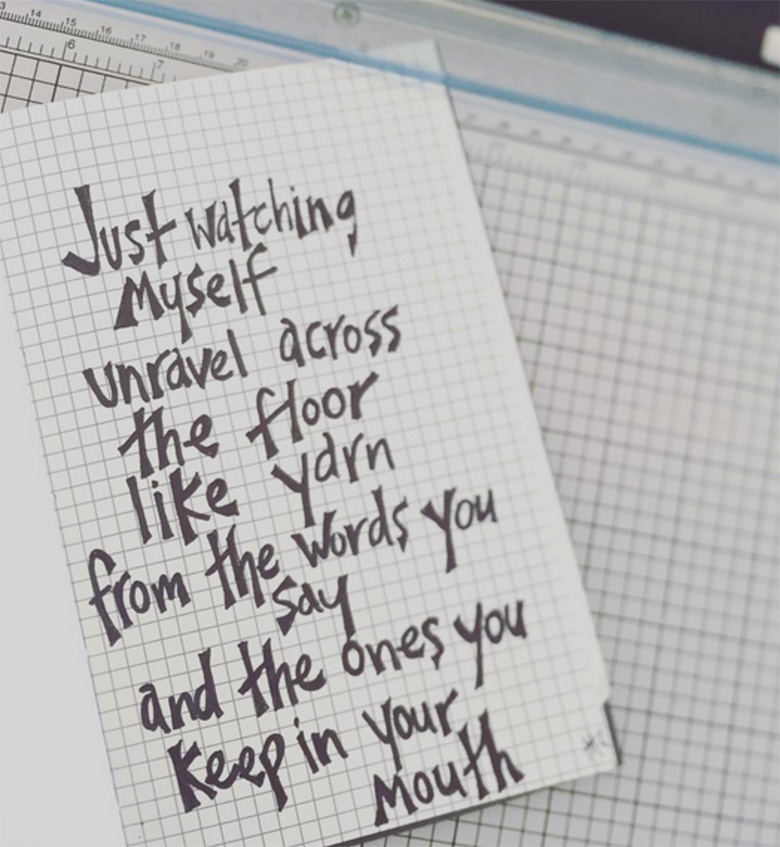 3 14 15 16 17 18 19 20
6 7
Just watching
Myself
unravel across
the floor
like yarn
from the words you
say
and the ones you
keep in your
Mouth